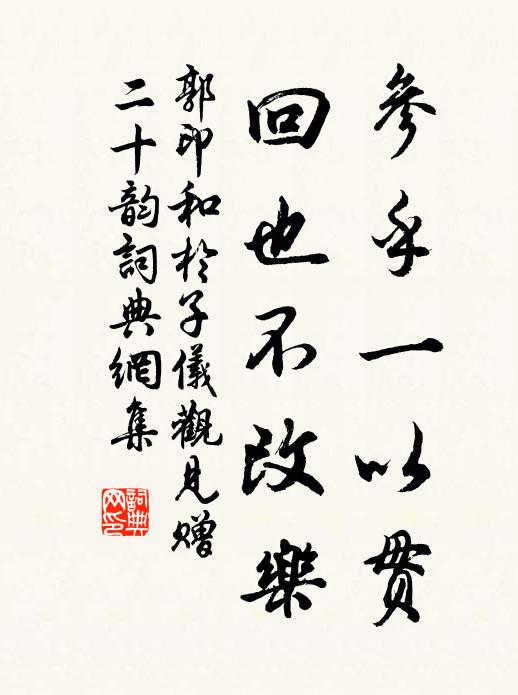 參乎一以貫
回也不改樂
郭印和於子儀觀見贈
二十韵詞典網集
詞典网印